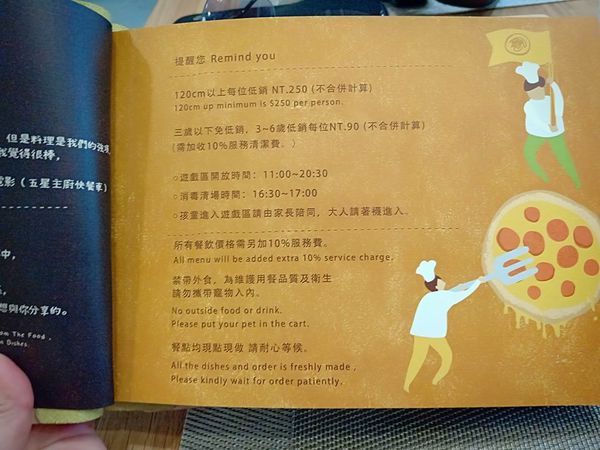 但是料理是我們的強項
我覺得很棒，
電影（五星主廚快餐車）
中，
想與你分享的。
om The Food ,
n Dishes.
提醒您 Remind you
120cm以上每位低銷 NT.250 (不合併計算)
120cm up minimum is $250 per person.
三歲以下免低銷，3~6歲低銷每位NT.90 (不合併計算)
(需加收10%服務清潔費。)
○遊戲區開放時間：11:00~20:30
○消毒清場時間：16:30~17:00
○孩童進入遊戲區請由家長陪同，大人請著襪進入。
所有餐飲價格需另加10%服務費。
All menu will be added extra 10% service charge.
禁帶外食，為維護用餐品質及衛生
請勿攜帶寵物入內。
No outside food or drink.
Please put your pet in the cart.
餐點均現點現做 請耐心等候。
All the dishes and order is freshly made ,
Please kindly wait for order patiently.